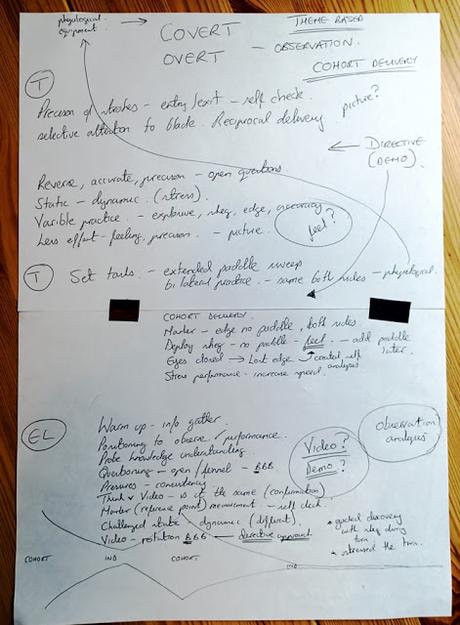 physiological
equipment
COVERT
OVERT
THEME BASED
— OBSERVATION.
COHORT DELIVERY
T
Precision of strokes – entry/exit – self check.
picture?
selective attention to blade. Reciprocal delivery
← DIRECTIVE
(DEMO).
Reverse, accurate, precision – open questions.
Static – dynamic. (stress)
Varible practice. – explosive, edge, accuracy
Less effort – feeling, precision. – picture.
feel?
T
Set tasks. – extended paddle sweep
bilateral practice. – same both sides – physiological.
COHORT DELIVERY
Marker – edge no paddle, both sides
Deploy – no paddle – feel – add paddle
later.
Eyes closed → Lost edge created self
analysis
Stress performance – increase speed
EL
Warm up – info gather.
Positioning to observe / performance.
Probe knowledge understanding.
Questioning – open / funnel – BBB
Pressures – consistency
Think v Video – is it the same (confirmation)
Marker (reference point) measurement – self check.
Challenged static – dynamic (different).
Video – BBB ← directive approach.
Video?
Demo?
Observation
analysis
* guided discovery
with during
turn
* stressed the turn.
COHORT
IND
COHORT
IND